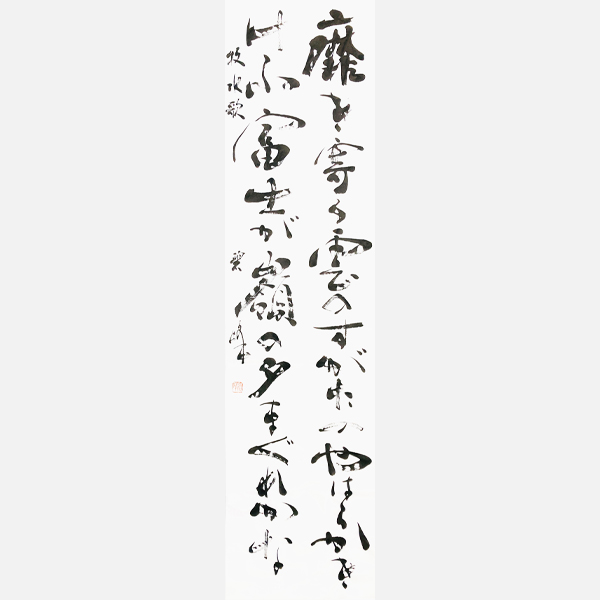 靡き寄る雲のすがたのやはらかき
けふ富士が嶺の夕まぐれかな
牧水歌